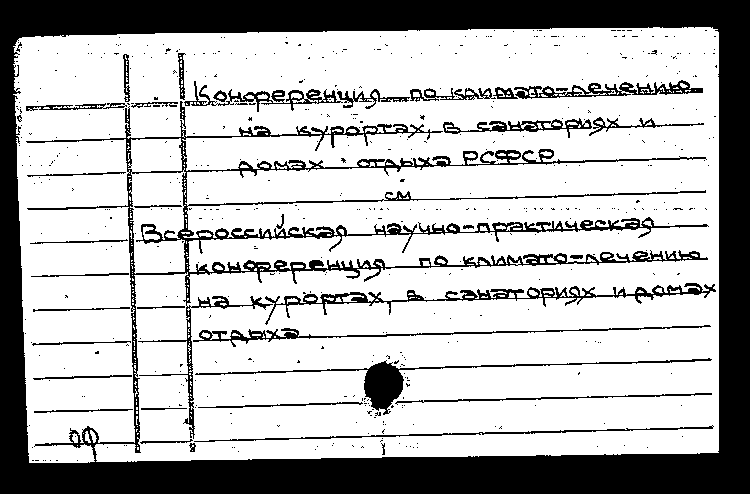 Конференция по климато-лечению
на курортах, в санаториях и
домах отдыха РСФСР
см
Всероссийская научно-практическая
конференция по климато-лечению
на курортах, в санаториях и домах
отдыха.
оф